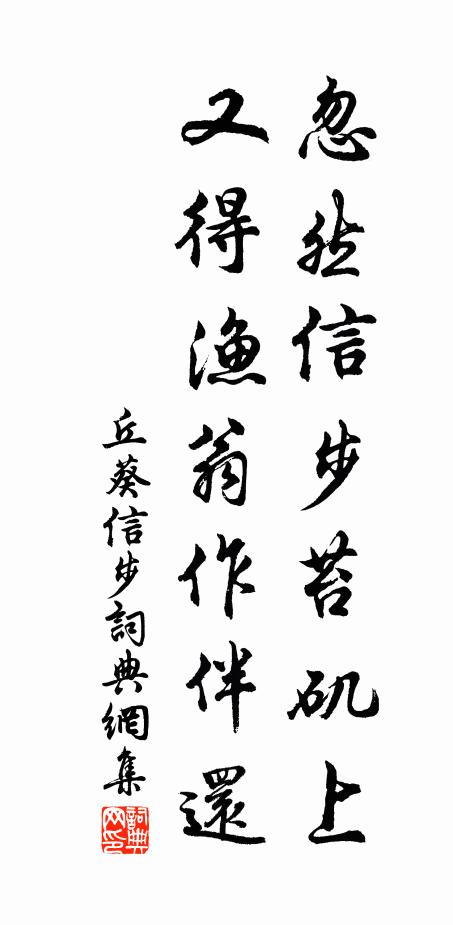 忽然信步苔矶上
又得渔翁作伴還
丘葵信步詞典網集
詞典网印